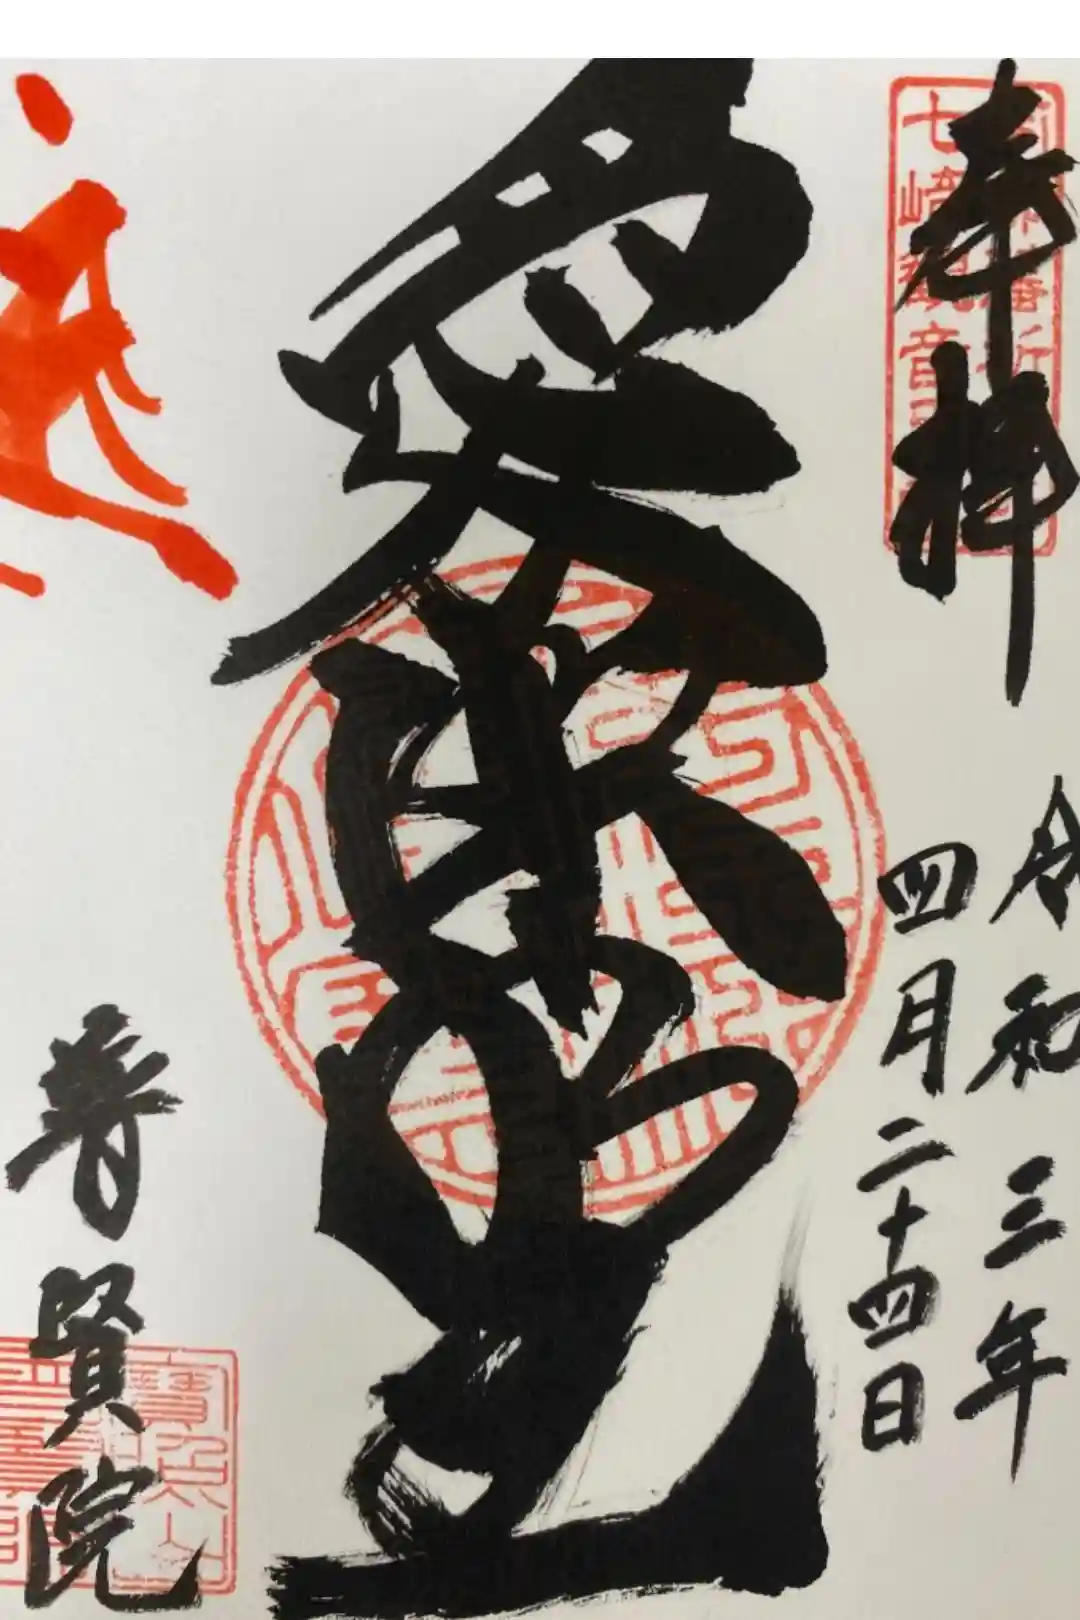 奉拝
七崎観音
令和三年
四月二十四日
愛染明王
普賢院